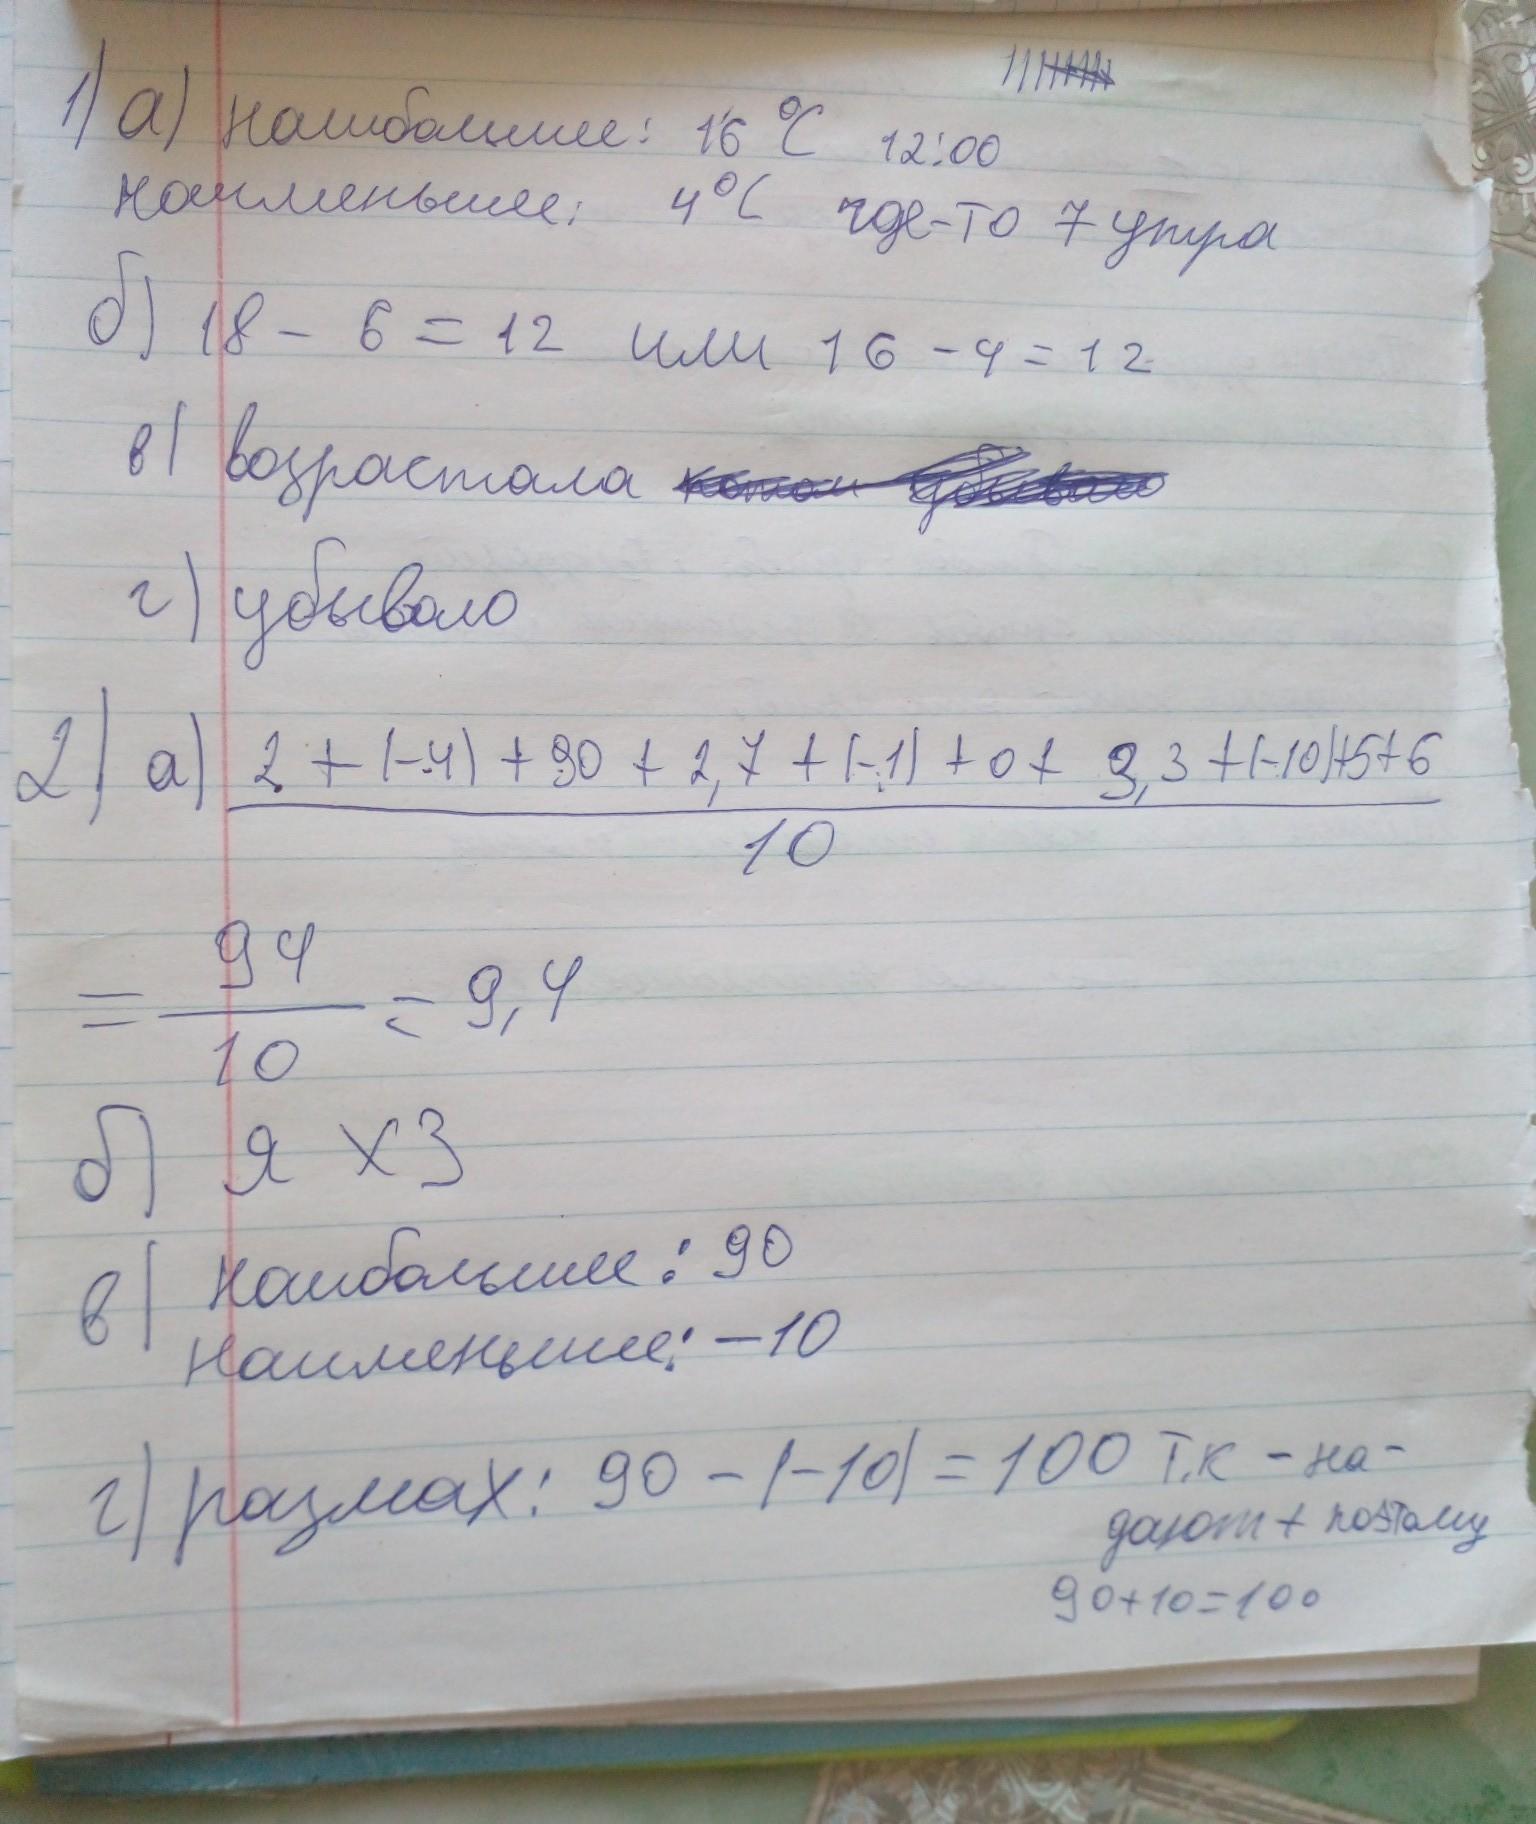 1) а) Наибольшее: 16 °C 12:00
Наименьшее: 4°C где-то 7 утра
б) 18 - 6 = 12 или 16 - 4 = 12
в) возрастала
г) убывало
2) а) 2 + (-4) + 90 + 2,7 + (-1) + 0 + 3,3 + (-10)+5+6
10
= 94/10 = 9,4
б) Я ХЗ
в) Наибольшее: 90
Наименьшее: -10
г) размах: 90 - (-10) = 100 т.к - на -
дают + поэтому
90+10=100